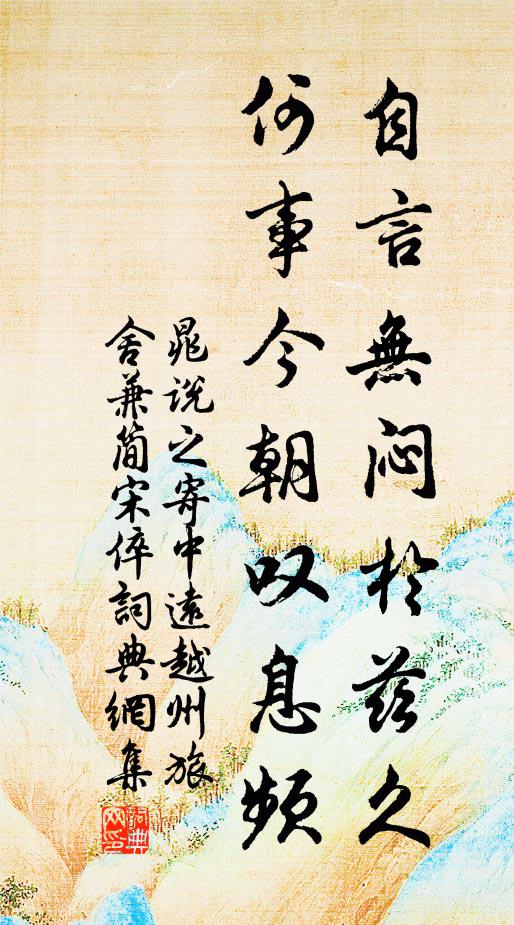 自言無悶於茲久
何事今朝叹息頻
晁說之寄中遠越州旅
舍兼簡宋倅詞典網集
詞典網印